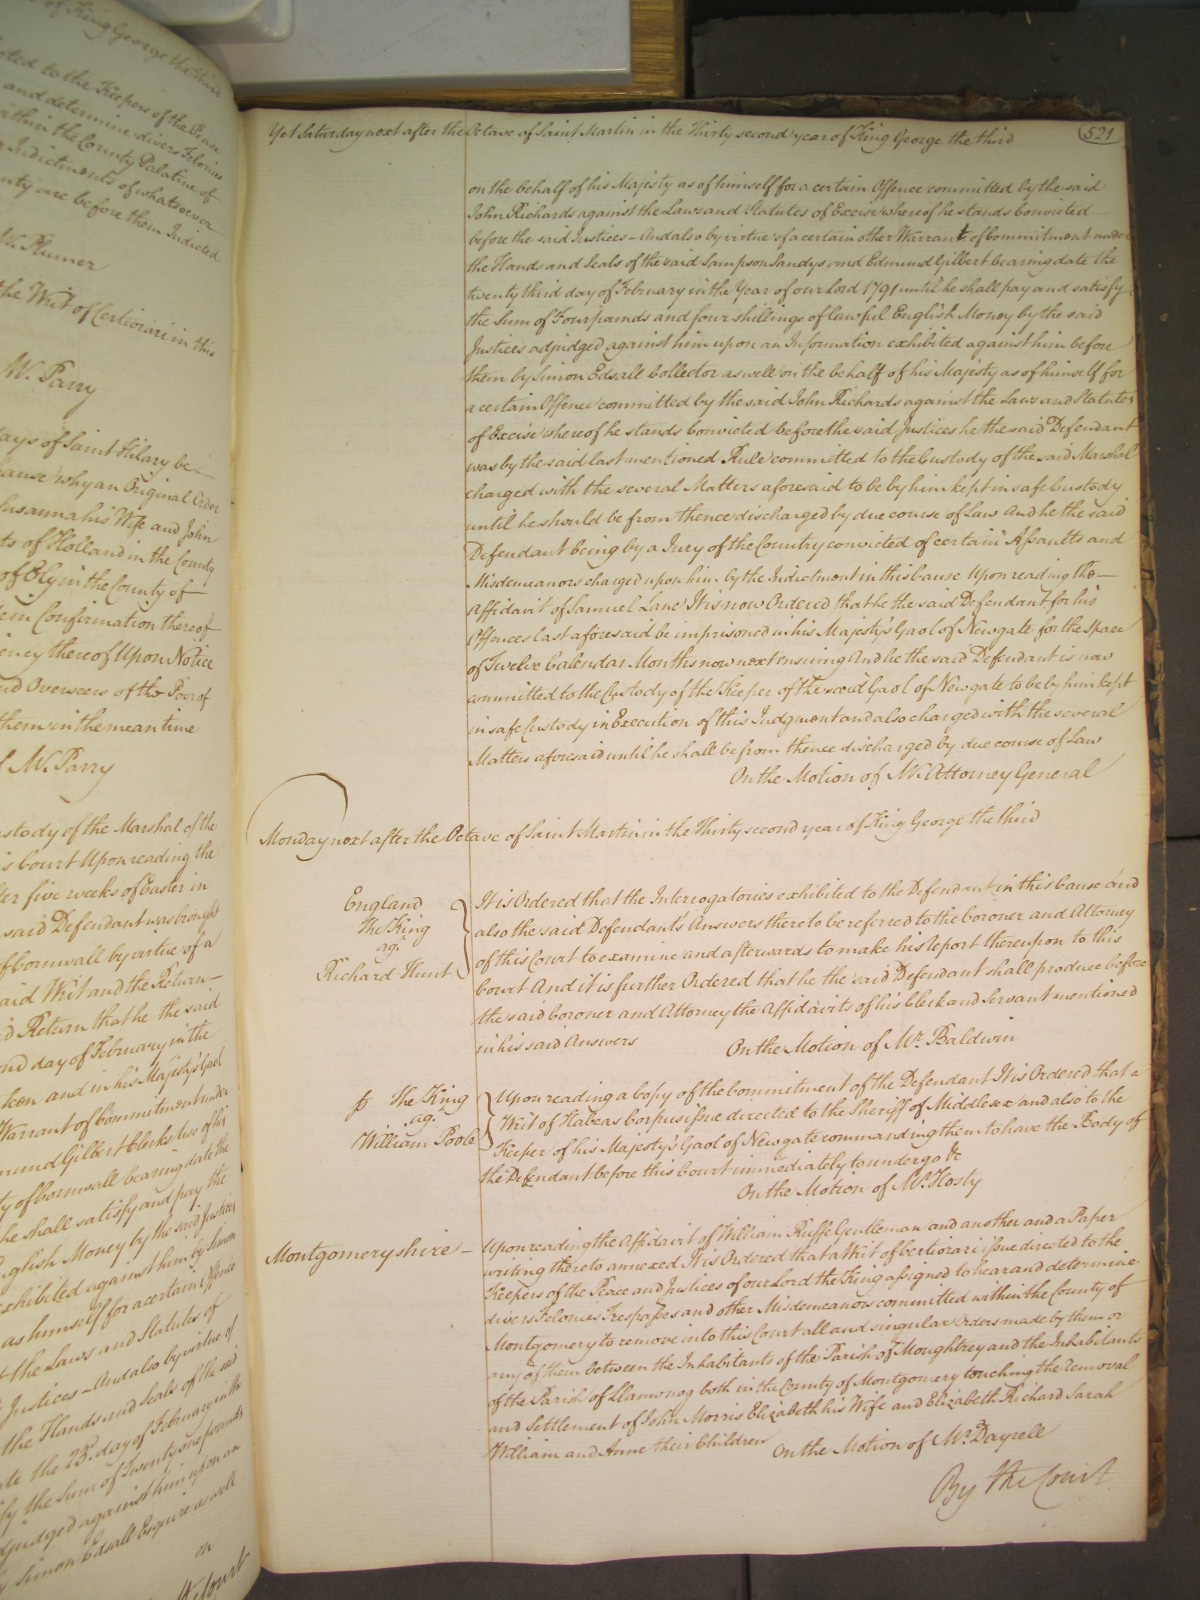 of King George the third
cted to the Keepers of the Peace
and determine divers Felonies
within the County Palatine of
Indictments of whatsoever
nty are before them Indicted
W. Plumer
the Writ of Certiorari in this
W. Parry
ays of Saint Hilary be
cause why an Original Order
Susannah his Wife and John
ts of Holland in the County
of Ely in the County of
em Confirmation thereof
ency thereof Upon Notice
nd Overseers of the Poor of
them in the mean time
W. Parry
ustody of the Marshal of the
is Court Upon reading the
ter five weeks of Easter in
said Defendant was brought
of Cornwall by virtue of a
aid Writ and the Return
d Return that he the said
ond day of February in the
ken and in his Majesty's Gaol
Warrant of Commitment under
mund Gilbert Clerks two of his
ty of Cornwall bearing date the
he shall satisfy and pay the
nglish Money by the said Justices
exhibited against him by Simon
as himself for a certain Offence
t the Laws and Statutes of
Justices – And also by virtue of
the Hands and Seals of the said
te the 23d. day of February in the
fy the Sum of Twenty one pounds
djudged against him upon an
y Simon Edsall Esquire as well
on
Court
Yet Saturday next after the Octave of Saint Martin in the Thirty second year of King George the third
521
on the behalf of his Majesty as of himself for a certain Offence committed by the said
John Richards against the Laws and Statutes of Excise whereof he stands Convicted
before the said Justices – And also by virtue of a certain other Warrant of Commitment under
the Hands and Seals of the said Sampson Sandys and Edmund Gilbert bearing date the
twenty third day of February in the Year of our Lord 1791 until he shall pay and satisfy
the Sum of Four pounds and four shillings of lawful English Money by the said
Justices adjudged against him upon an Information exhibited against him before
them by Simon Edsall Collector as well on the behalf of his Majesty as of himself for
a certain Offence committed by the said John Richards against the Laws and Statutes
of Excise whereof he stands Convicted before the said Justices he the said Defendant
was by the said last mentioned Rule committed to the Custody of the said Marshal
charged with the several Matters aforesaid to be by him kept in safe Custody
until he should be from thence discharged by due course of Law And he the said
Defendant being by a Jury of the Country convicted of certain Assaults and
Misdemeanors charged upon him by the Indictment in this Cause Upon reading the
Affidavit of Samuel Lane It is now Ordered that he the said Defendant for his
Offences last aforesaid be imprisoned in his Majesty's Gaol of Newgate for the space
of Twelve Calendar Months now next ensuing And he the said Defendant is now
committed to the Custody of the Keeper of the said Gaol of Newgate to be by him kept
in safe Custody in Execution of this Judgment and also charged with the several
Matters aforesaid until he shall be from thence discharged by due course of Law
On the Motion of Mr. Attorney General
Monday next after the Octave of Saint Martin in the Thirty second year of King George the third
England
The King
agt.
Richard Hunt
It is Ordered that the Interrogatories exhibited to the Defendant in this Cause and
also the said Defendant's Answers thereto be referred to the Coroner and Attorney
of this Court to examine and afterwards to make his report thereupon to this
Court And it is further Ordered that he the said Defendant shall produce before
the said Coroner and Attorney the Affidavits of his Clerk and Servant mentioned
in his said Answers
On the Motion of Mr. Baldwin
The King
agt.
William Poole
Upon reading a copy of the Commitment of the Defendant It is Ordered that a
Writ of Habeas Corpus issue directed to the Sheriff of Middlesex and also to the
Keeper of his Majesty's Gaol of Newgate commanding them to have the Body of
the Defendant before this Court immediately to undergo &c
On the Motion of Mr. Hosty
Montgomeryshire –
Upon reading the Affidavit of William Ruffe Gentleman and another and a Paper
writing thereto annexed It is Ordered that a Writ of Certiorari issue directed to the
Keepers of the Peace and Justices of our Lord the King assigned to hear and determine
divers Felonies Trespasses and other Misdemeanors committed within the County of
Montgomery to remove into this Court all and singular Orders made by them or
any of them between the Inhabitants of the Parish of Moughtrey and the Inhabitants
of the Parish of Llamonog both in the County of Montgomery touching the removal
and Settlement of John Morris Elizabeth his Wife and Elizabeth Richard Sarah
William and Anne their Children
On the Motion of Mr. Dayrell
By the Court